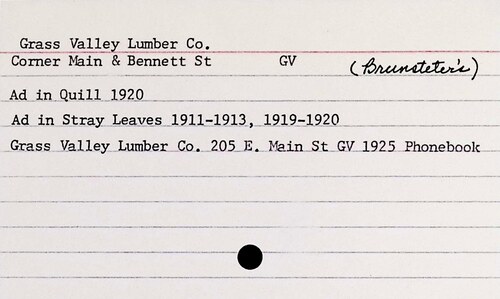 Grass Valley Lumber Co.
Corner Main & Bennett St GV (Brunsteter's)
Ad in Quill 1920
Ad in Stray Leaves 1911-1913, 1919-1920
Grass Valley Lumber Co. 205 E. Main St GV 1925 Phonebook